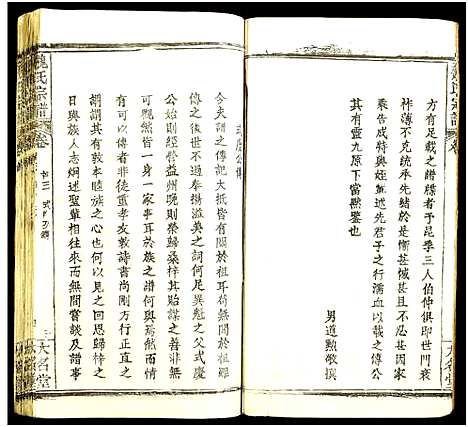 方有足載之譜牒者于昆季三人伯仲俱即世門衰
薄不克統承先緒於是慚甚懼甚且不忍甚不容
棄告成特與姪某述先君子之行濡血以載之傳公
其有靈九原下當默鑒也
男道勲敬撰
式慶公傳
今夫譜之傳記大抵皆有關於祖耳苟無關於祖雖
傳之後世不過奉揚溢美之詞何足異魁之父式慶
公始則經營益州晚則榮歸桑梓其貽謀之善非無
可觀然皆一身一家事耳於族何與焉然而
傳者非徒重孝友敦詩書尚剛方行正直之
謝謝其有敦本睦族之心也吾思歸悽之
日與族人志炯述聖輩相往來而無間嘗談及譜事
魏氏宗譜
卷
大名堂
魏氏宗譜
卷
大名堂